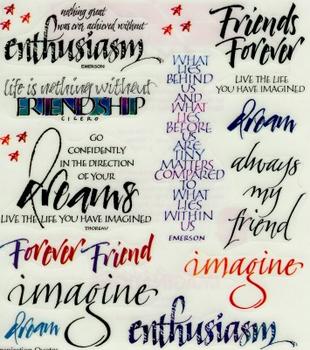 nothing great
was ever achieved without
enthusiasm
EMERSON
life is nothing without
FRIENDSHIP
CICERO
GO
CONFIDENTLY
IN THE DIRECTION
OF YOUR
dreams
LIVE THE LIFE YOU HAVE IMAGINED
THOREAU
Forever Friend
imagine
dream
WHAT
LIES
BEHIND
US
AND
WHAT
LIES
BEFORE
US
ARE
TINY
MATTERS
COMPARED
TO
WHAT
LIES
WITHIN
US
EMERSON
Friends
Forever
LIVE THE LIFE
YOU HAVE IMAGINED
dream
always
my
friend
imagine
enthusiasm